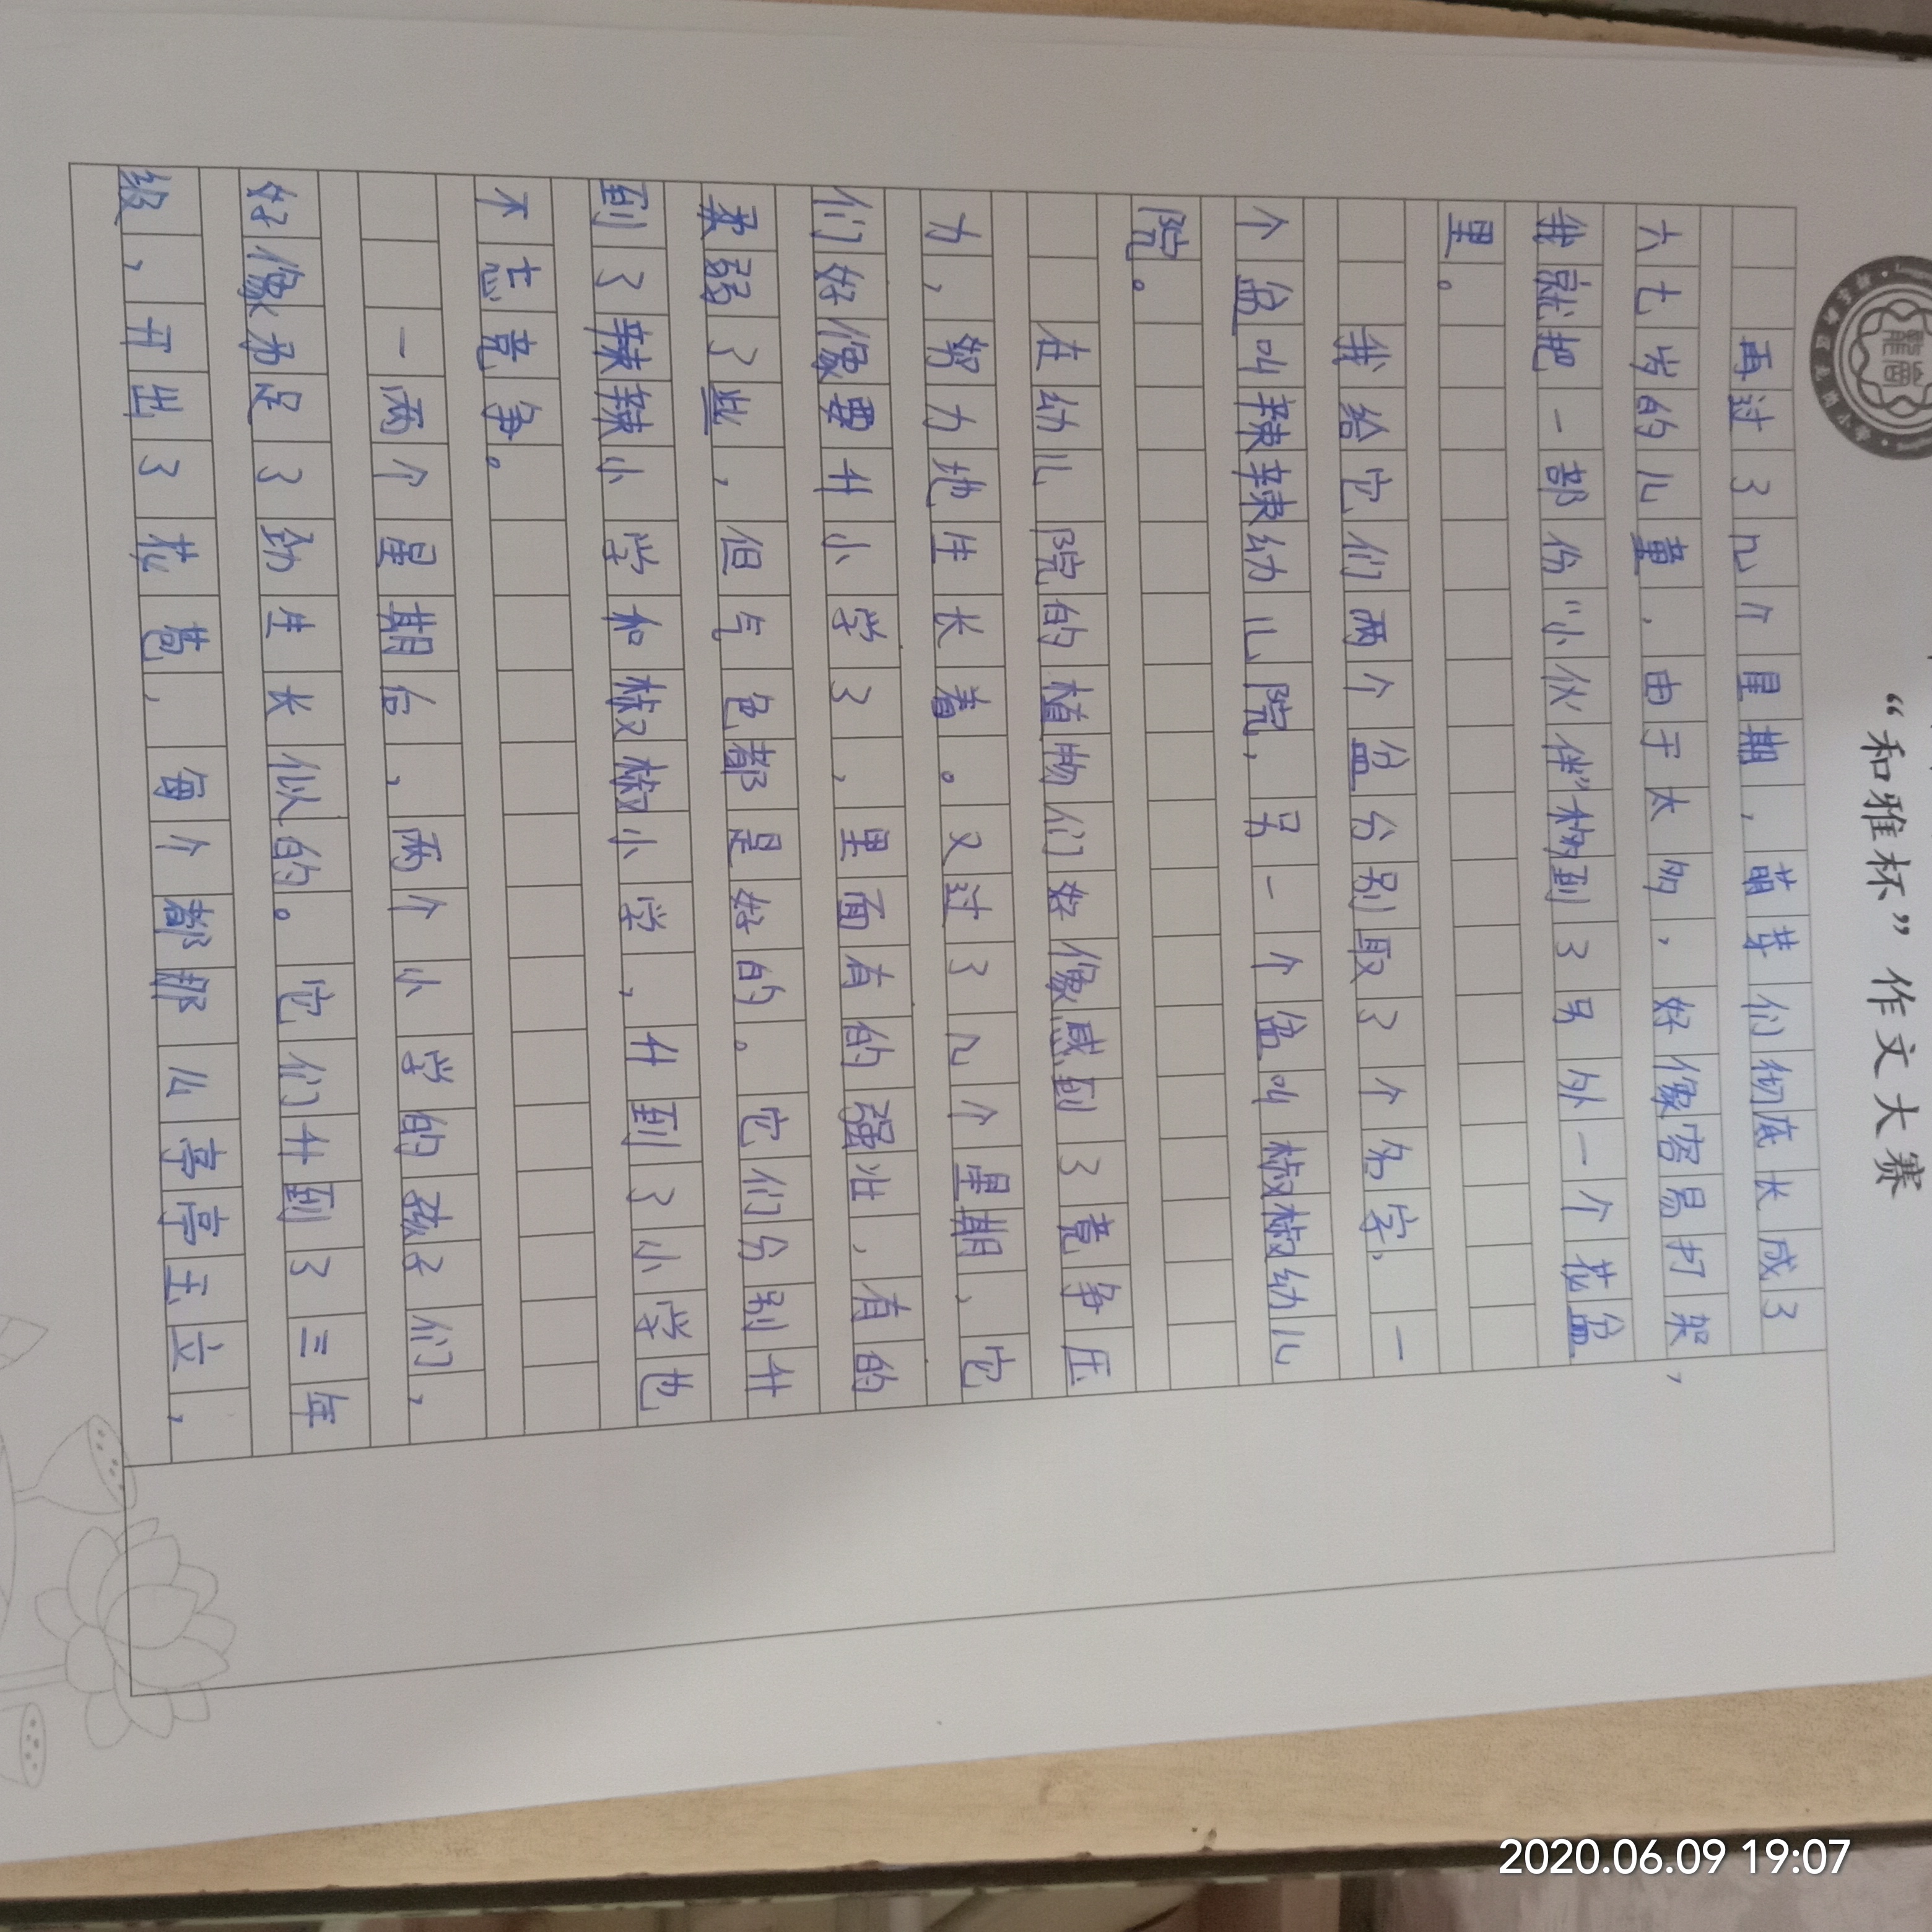 “和雅杯”作文大赛
再过了几个星期，萌芽们彻底长成了
六七岁的儿童，由于太多，好像容易打架，
我就把一部份“小伙伴”移到了另外一个花盆
里。
我给它们两个盆分别取了个名字，一
个盆叫辣辣幼儿院，另一个盆叫椒椒幼儿
院。
在幼儿院的植物们好像感到了竞争压
力，努力地生长着。又过了几个星期，它
们好像要升小学了，里面有的强壮，有的
柔弱了些，但气色都是好的。它们分别升
到了辣辣小学和椒椒小学，升到了小学也
不忘竞争。
一两个星期后，两个小学的孩子们，
好像为足了劲生长似的。它们升到了三年
级，开出了花苞，每个都那么亭亭玉立，
2020.06.09 19:07